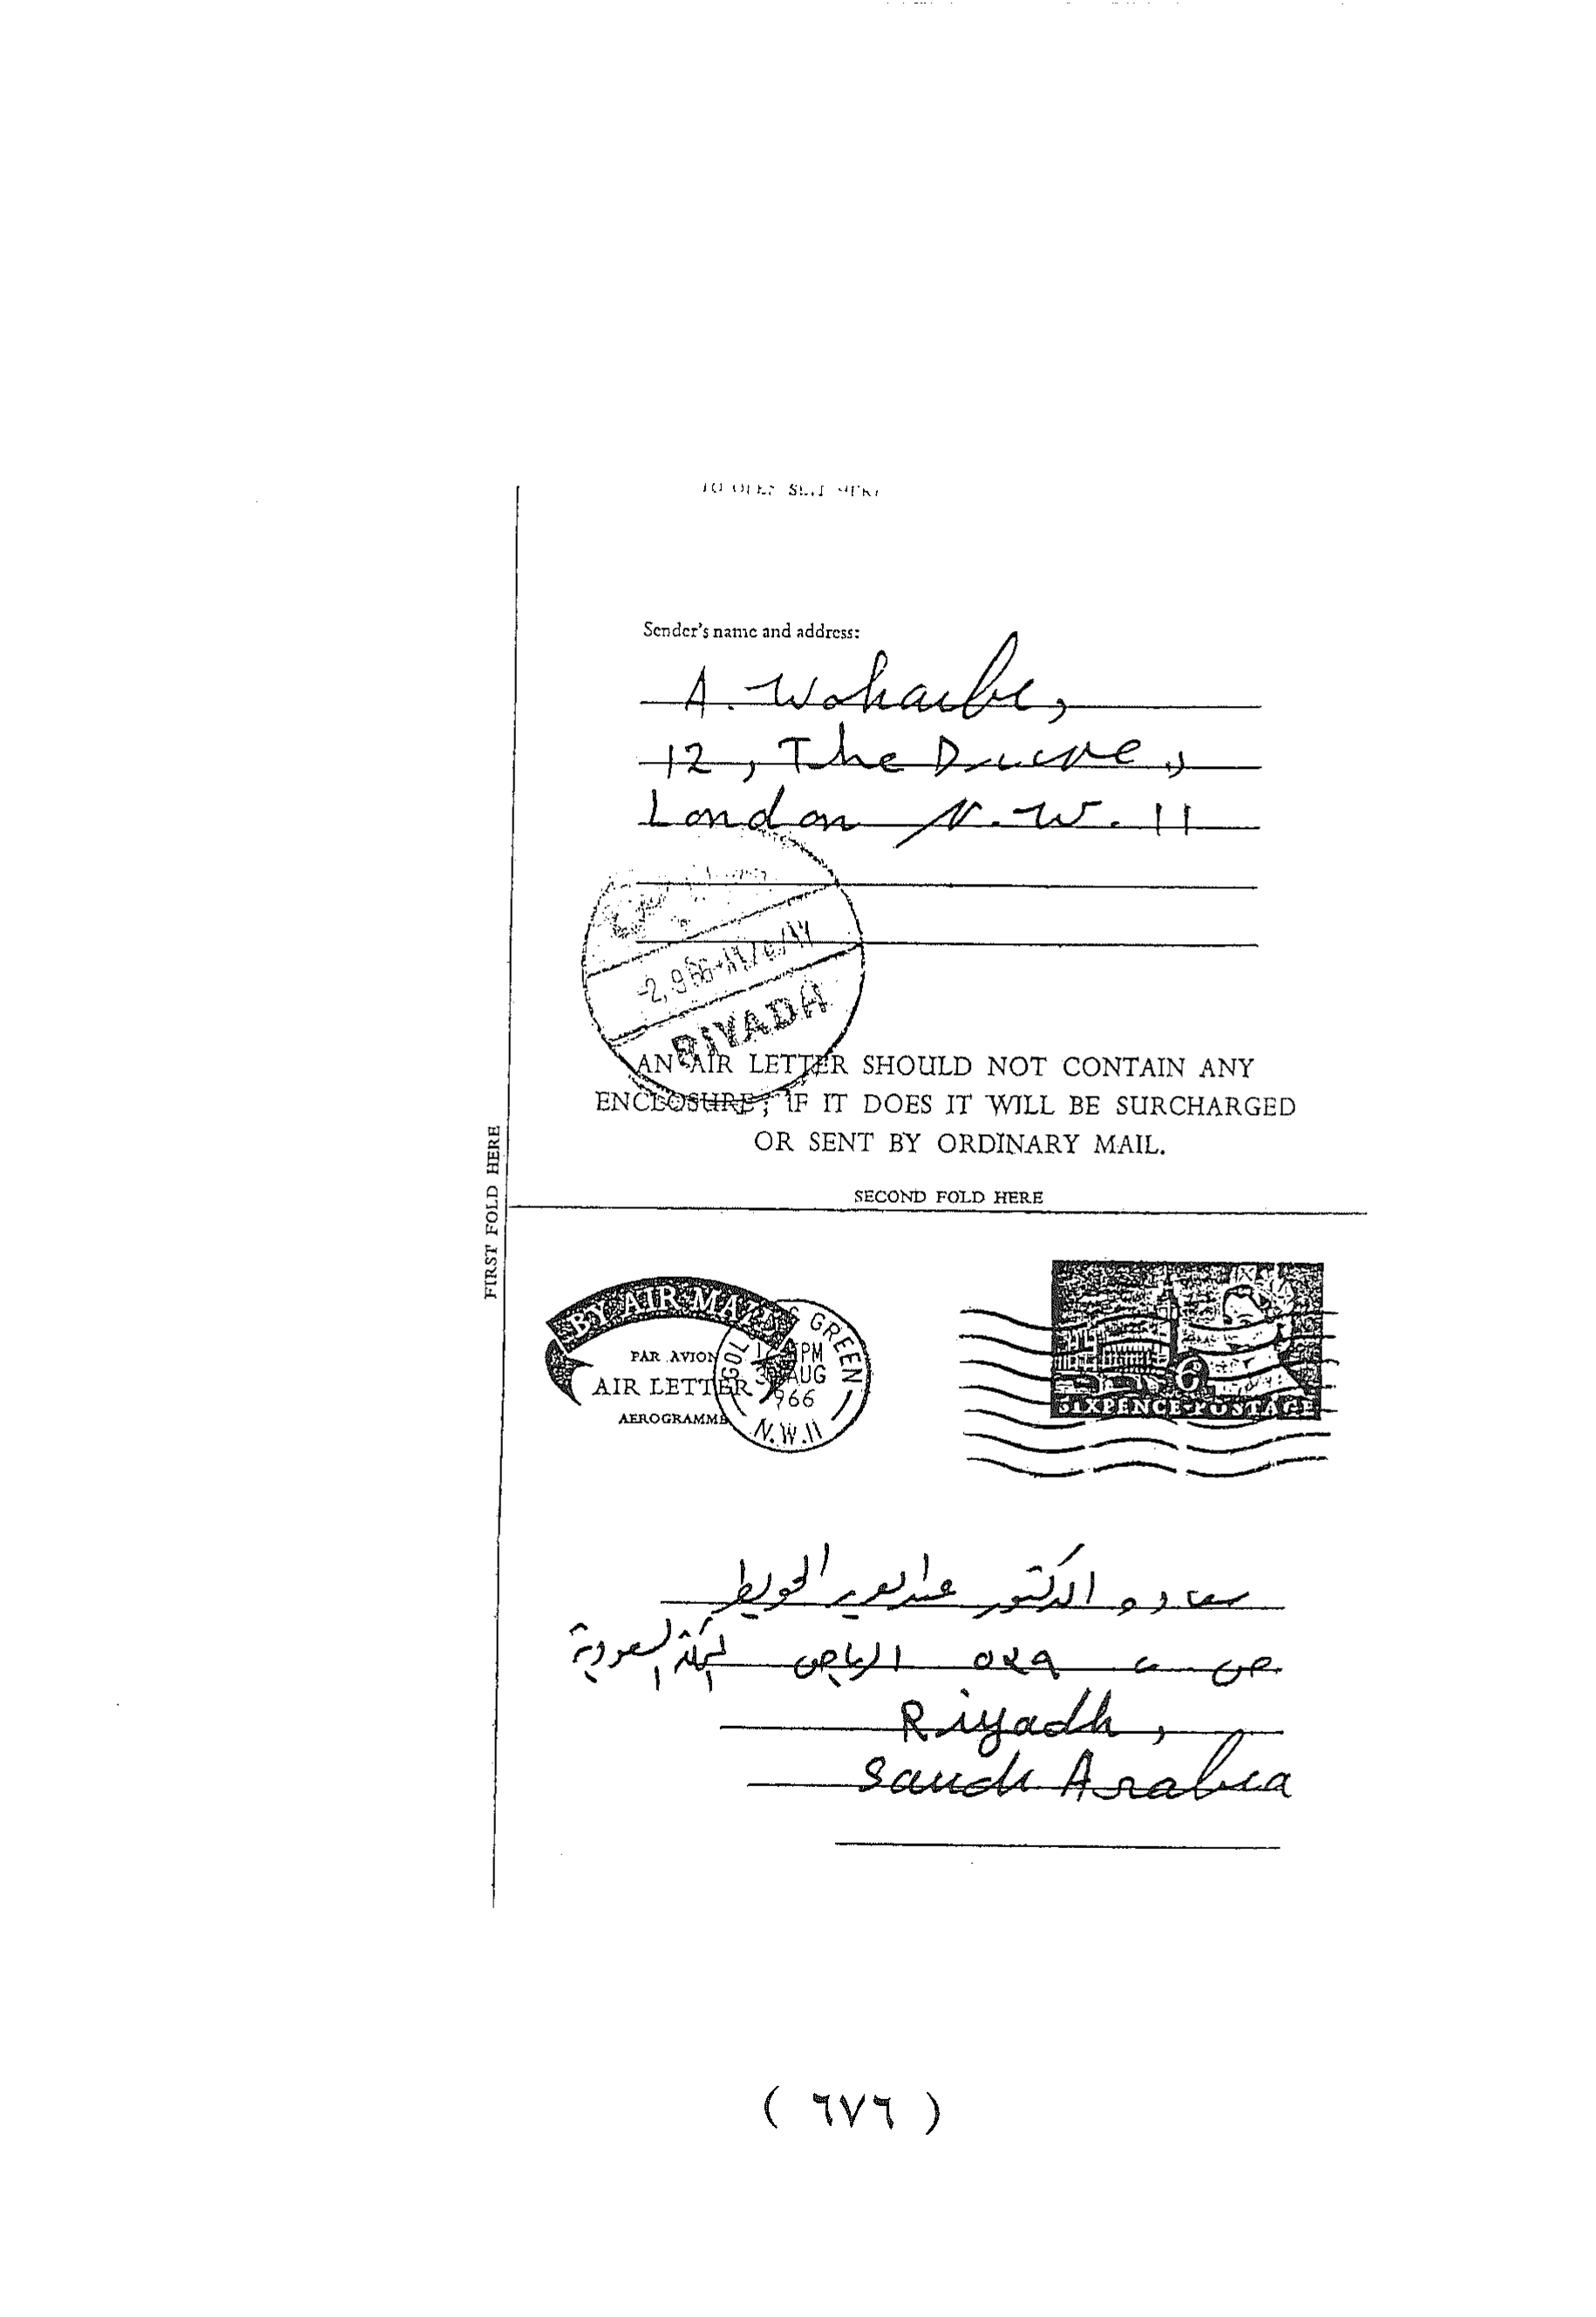 TO OPEN SLIT HERE
Sender's name and address:
A. Wohaibi,
12, The Drive,
London N.W. 11
-2.9.66
RIYADA
AN AIR LETTER SHOULD NOT CONTAIN ANY
ENCLOSURE; IF IT DOES IT WILL BE SURCHARGED
OR SENT BY ORDINARY MAIL.
SECOND FOLD HERE
FIRST FOLD HERE
BY AIR MAIL
PAR AVION
AIR LETTER
AEROGRAMME
GREEN
PM
AUG
1966
N.W.11
6
SIXPENCE·POSTAGE
سعادة الدكتور عبدالعزيز الخويطر
ص ب ٥٢٩ الرياض المملكة السعودية
Riyadh,
Saudi Arabia
( ٦٧٦ )